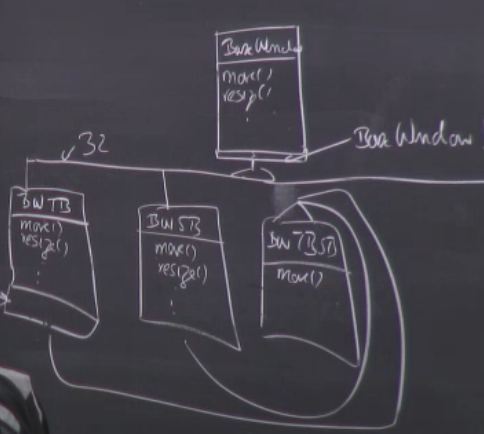 BaseWindow
move()
resize()
:
Base Window
32
BWTB
move()
resize()
:
BWSB
move()
resize()
:
BWTBSB
move()